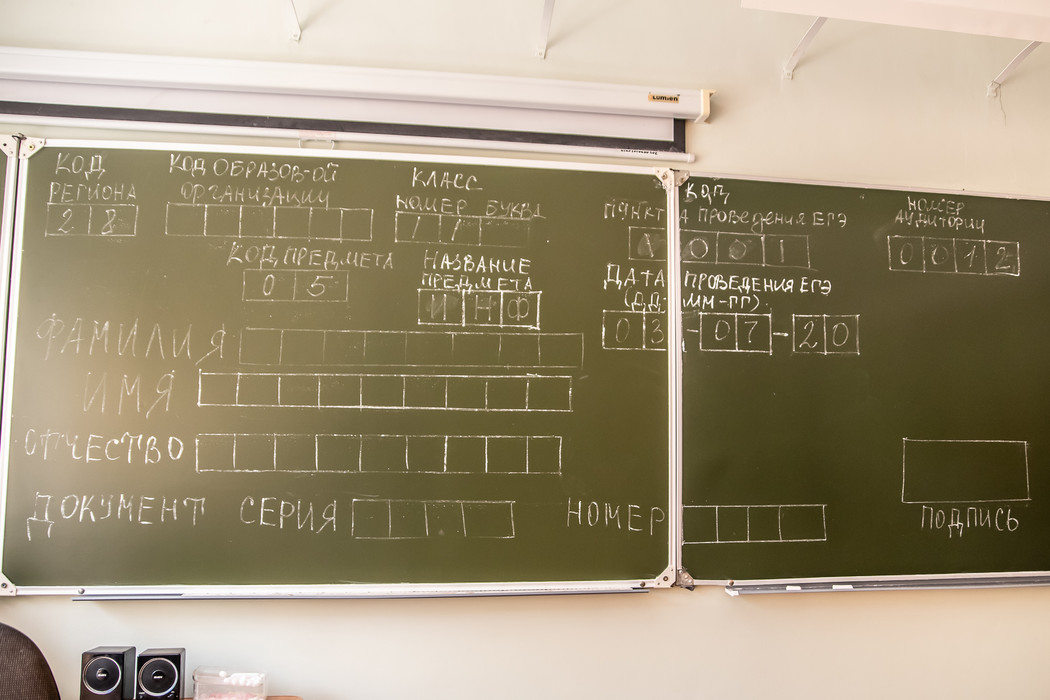 LUMIEN
КОД
РЕГИОНА
28
КОД ОБРАЗОВ-ОЙ
ОРГАНИЗАЦИИ
КЛАСС
НОМЕР БУКВА
11
КОД
ПУНКТА ПРОВЕДЕНИЯ ЕГЭ
А001
НОМЕР
АУДИТОРИИ
0012
КОД ПРЕДМЕТА
05
НАЗВАНИЕ
ПРЕДМЕТА
ИНФ
ДАТА ПРОВЕДЕНИЯ ЕГЭ
(ДД-ММ-ГГ)
03-07-20
ФАМИЛИЯ
ИМЯ
ОТЧЕСТВО
ДОКУМЕНТ СЕРИЯ НОМЕР
ПОДПИСЬ